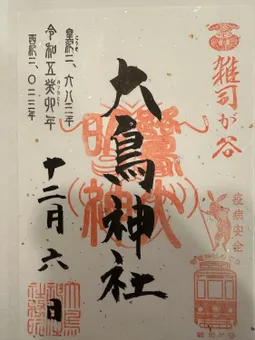 雑司が谷
疫病安全
大鳥神社
皇紀二、六八三年
令和五癸卯年
西暦二、〇二三年
十二月六日